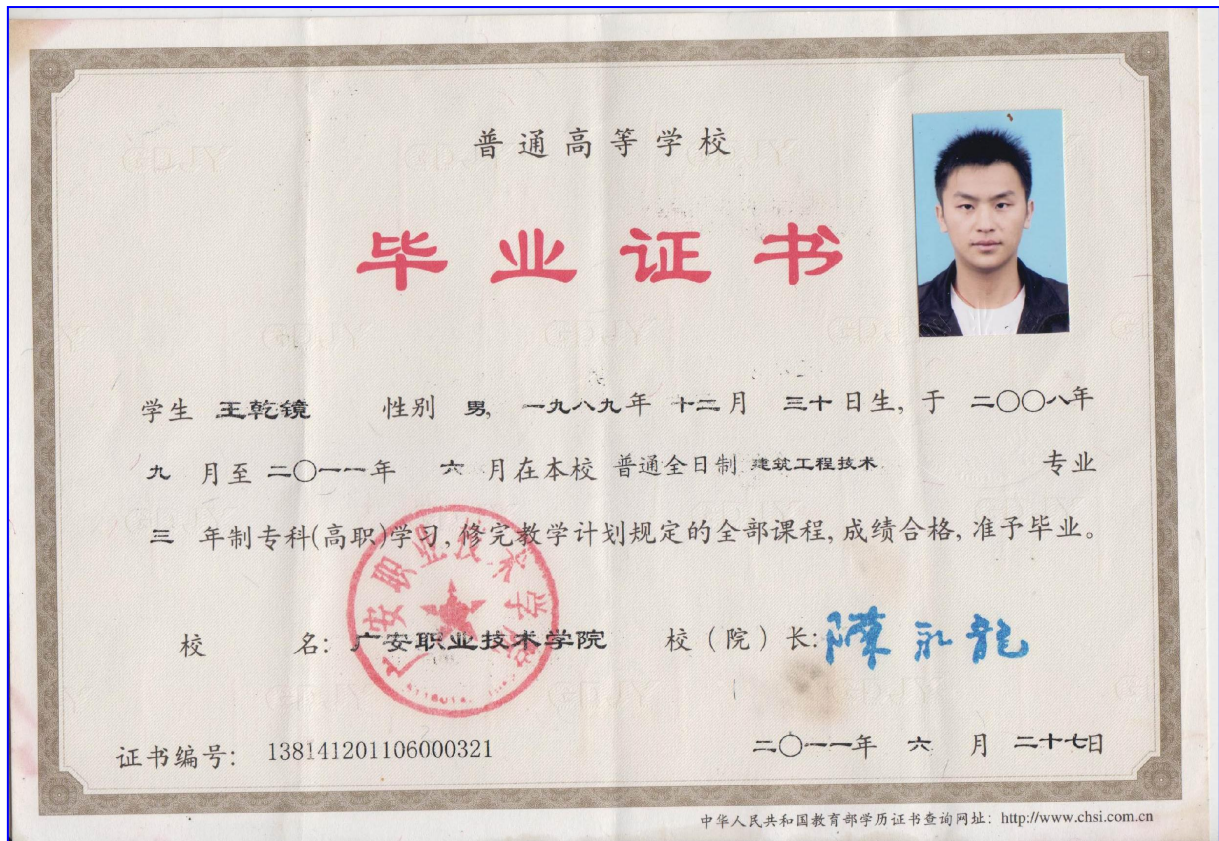 普通高等学校
毕业证书
学生 王乾镜 性别 男, 一九八九年 十二月 三十日生, 于 二〇〇八年
九 月至 二〇一一年 六 月在本校 普通全日制 建筑工程技术 专业
三 年制专科(高职)学习, 修完教学计划规定的全部课程, 成绩合格, 准予毕业。
校 名: 广安职业技术学院 校(院)长: 陈永龙
广安职业技术学院
证书编号: 138141201106000321 二〇一一年 六 月 二十七日
中华人民共和国教育部学历证书查询网址: http://www.chsi.com.cn